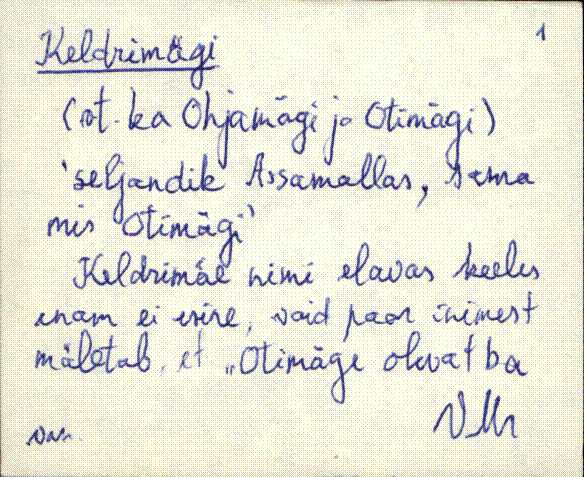 1
Keldrimägi
(vt. ka Ohjamägi ja Otimägi)
'seljandik Assamallas, sama
mis Otimägi'
Keldrimäe nimi elavas keeles
enam ei esine, vaid paar inimest
mäletab, et „Otimäge olevat ka
VMr